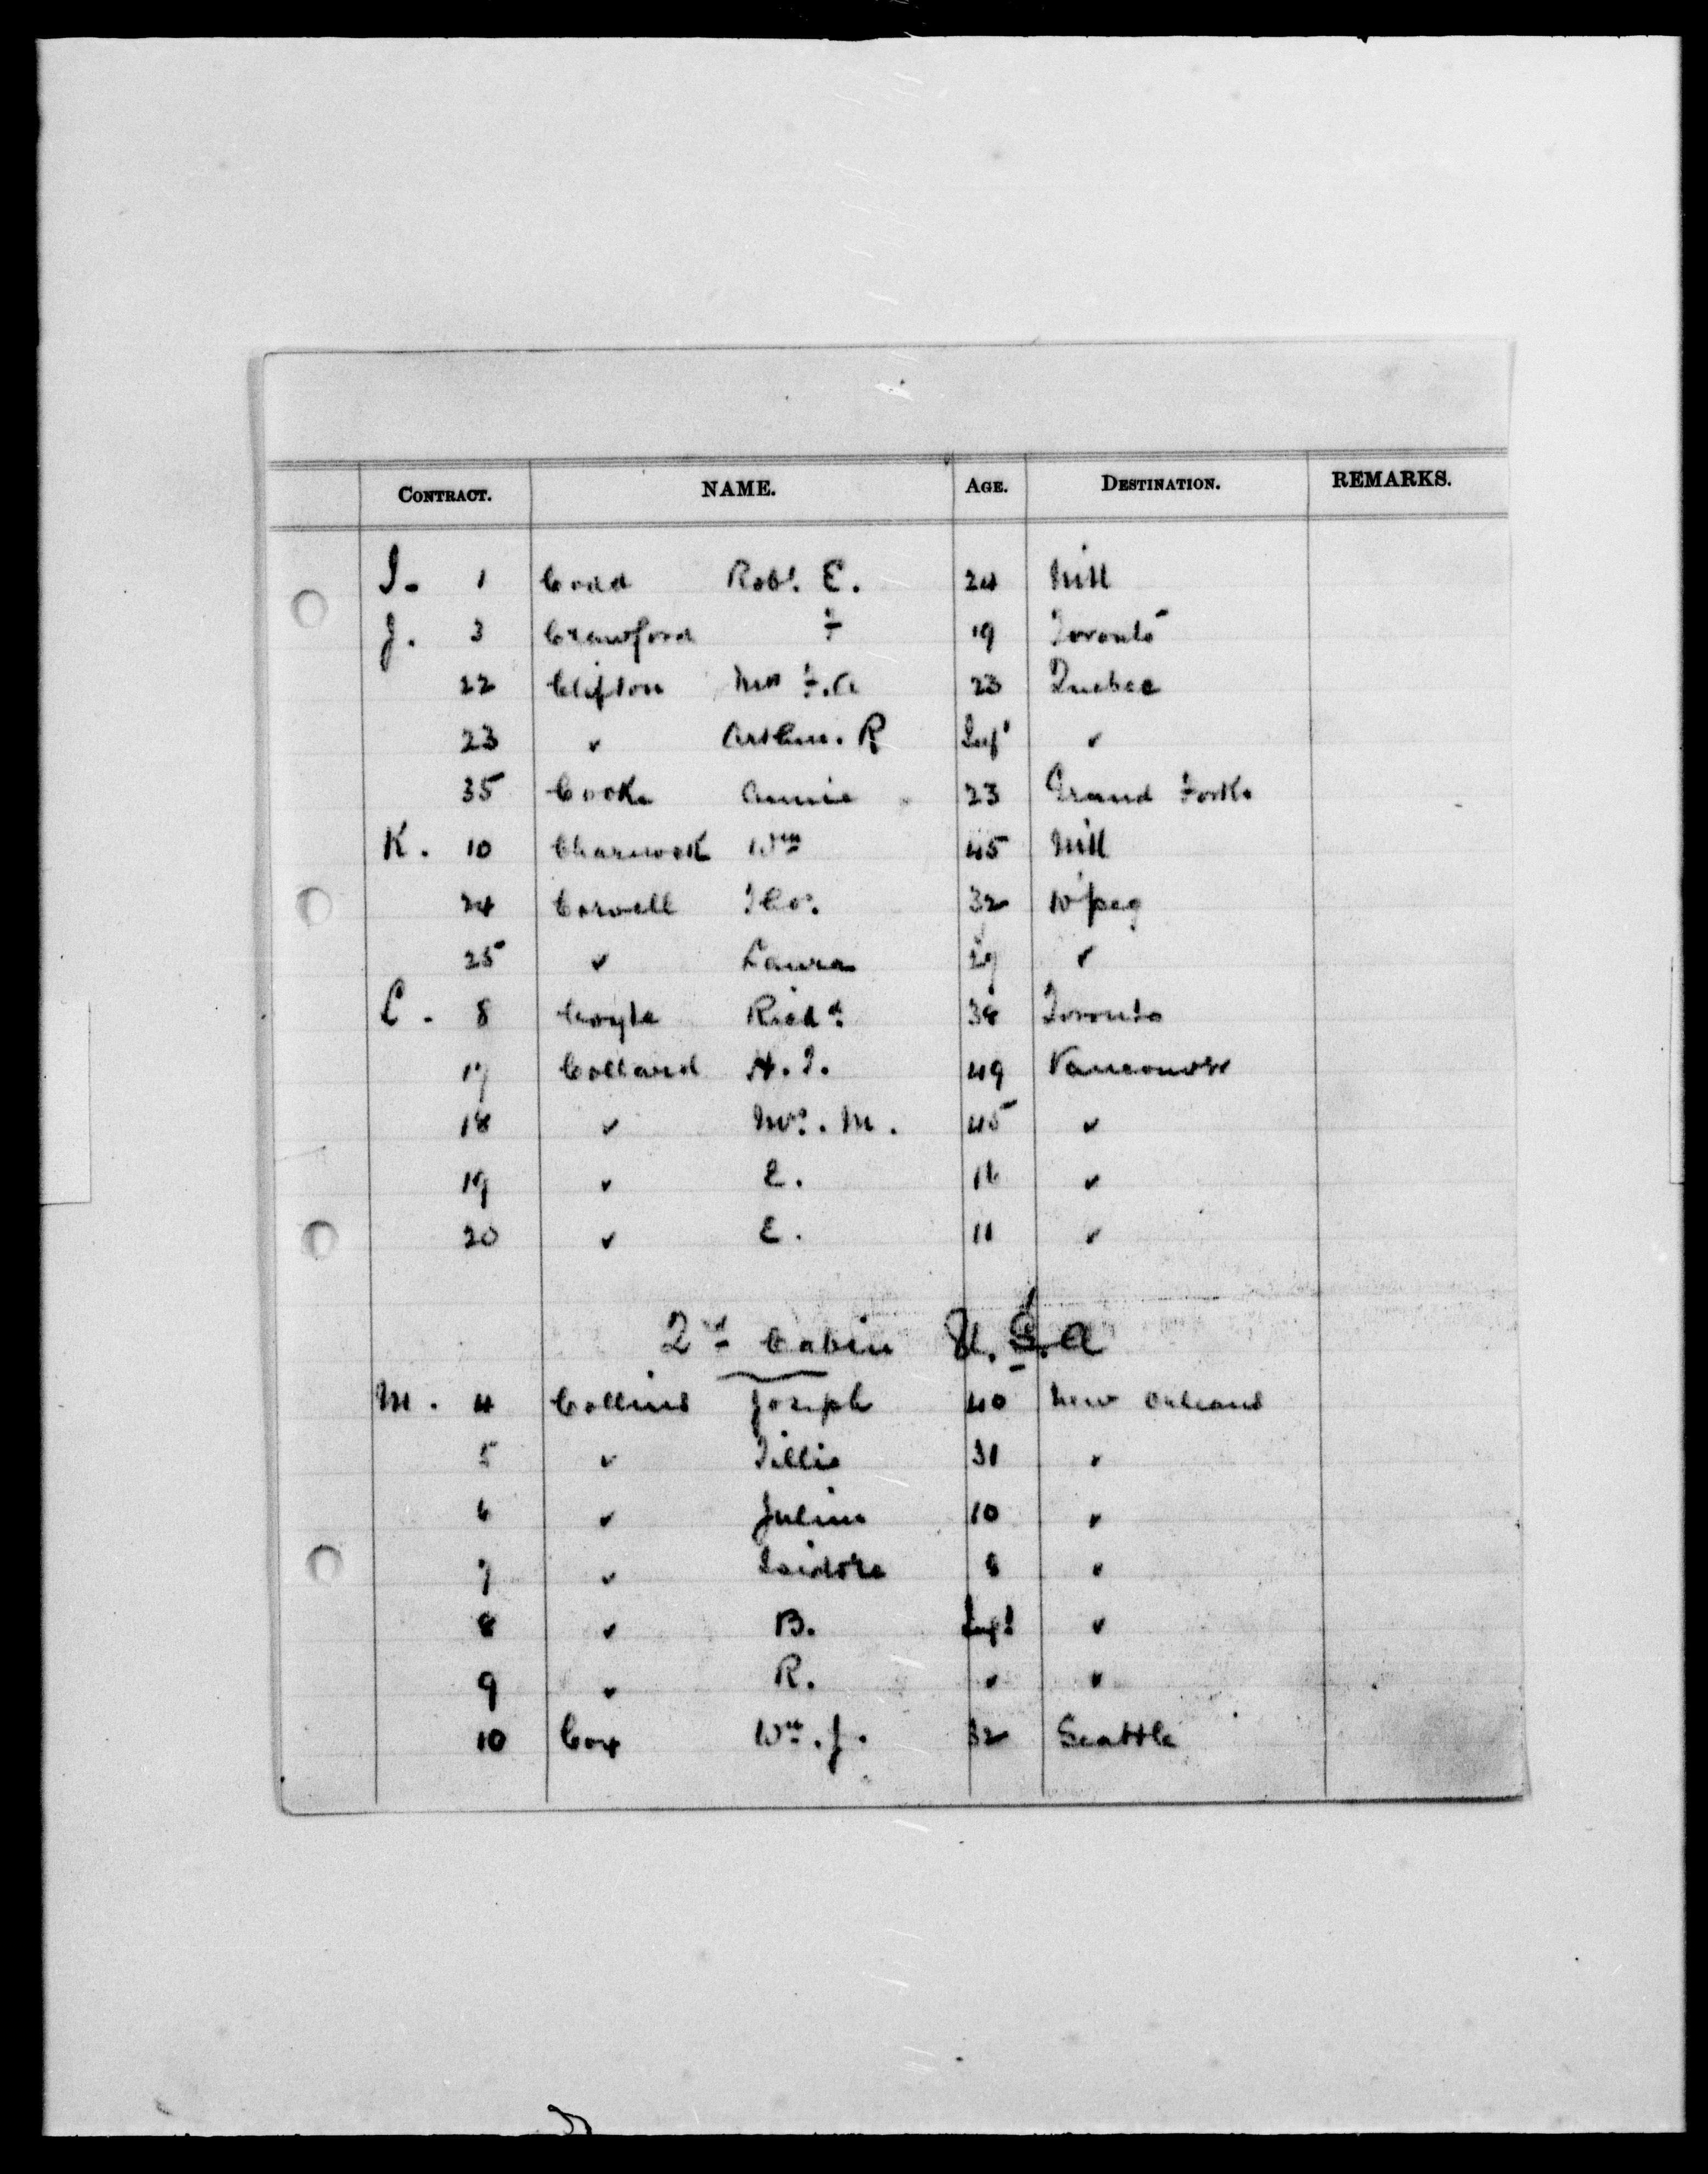 CONTRACT. NAME. AGE. DESTINATION. REMARKS.
I. 1 Codd Robt. E. 24 Mtl
J. 3 Crawford F 19 Toronto
22 Clifton Mrs F.A 23 Quebec
23 " Arthur. R Inft "
35 Cooke Annie 23 Grand Forks
K. 10 Charnock Wm 45 Mtl
24 Corvell Thos. 32 W'peg
25 " Laura 29 "
L. 8 Coyle Richd. 38 Toronto
17 Collard H.T. 49 Vancouver
18 " Mrs. M. 45 "
19 " E. 16 "
20 " E. 11 "
2nd Cabin U.S.A
M. 4 Collins Joseph 40 New Orleans
5 " Tillie 31 "
6 " Julius 10 "
7 " Isidore 8 "
8 " B. Inft "
9 " R. " "
10 Cox Wm. J. 32 Seattle